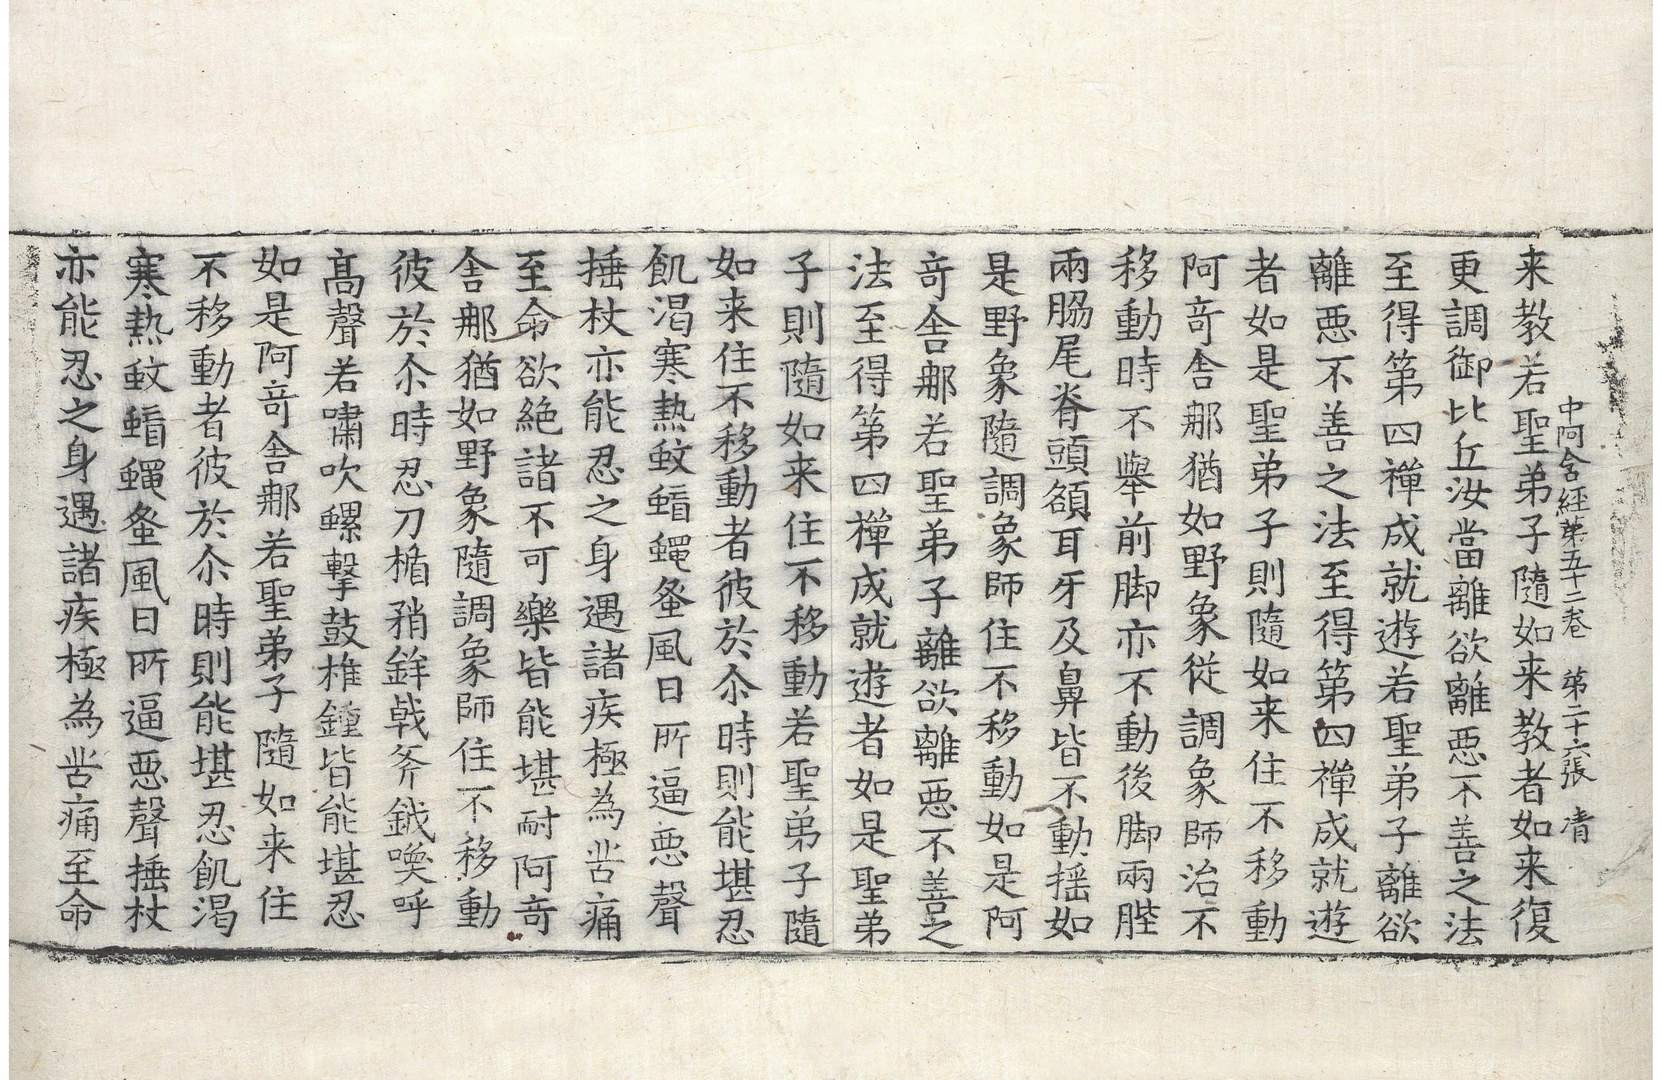 中阿含經第五十二卷　第二十六張　清
来教若聖弟子隨如来教者如来復
更調御比丘汝當離欲離惡不善之法
至得第四禪成就遊若聖弟子離欲
離惡不善之法至得第四禪成就遊
者如是聖弟子則隨如来住不移動
阿竒舎那猶如野象從調象師治不
移動時不舉前脚亦不動後脚兩䏶
兩脇尾脊頭額耳牙及鼻皆不動揺如
是野象隨調象師住不移動如是阿
竒舎那若聖弟子離欲離惡不善之
法至得第四禪成就遊者如是聖弟
子則隨如来住不移動若聖弟子隨
如来住不移動者彼於尒時則能堪忍
飢渇寒熱蚊䖟蠅蚤風日所逼惡聲
捶杖亦能忍之身遇諸疾極為苦痛
至命欲絶諸不可樂皆能堪耐阿竒
舎那猶如野象隨調象師住不移動
彼於尒時忍刀楯矟鉾戟斧鉞喚呼
高聲若嘯吹螺擊鼓椎鍾皆能堪忍
如是阿竒舎那若聖弟子隨如来住
不移動者彼於尒時則能堪忍飢渇
寒熱蚊䖟蠅蚤風日所逼惡聲捶杖
亦能忍之身遇諸疾極為苦痛至命